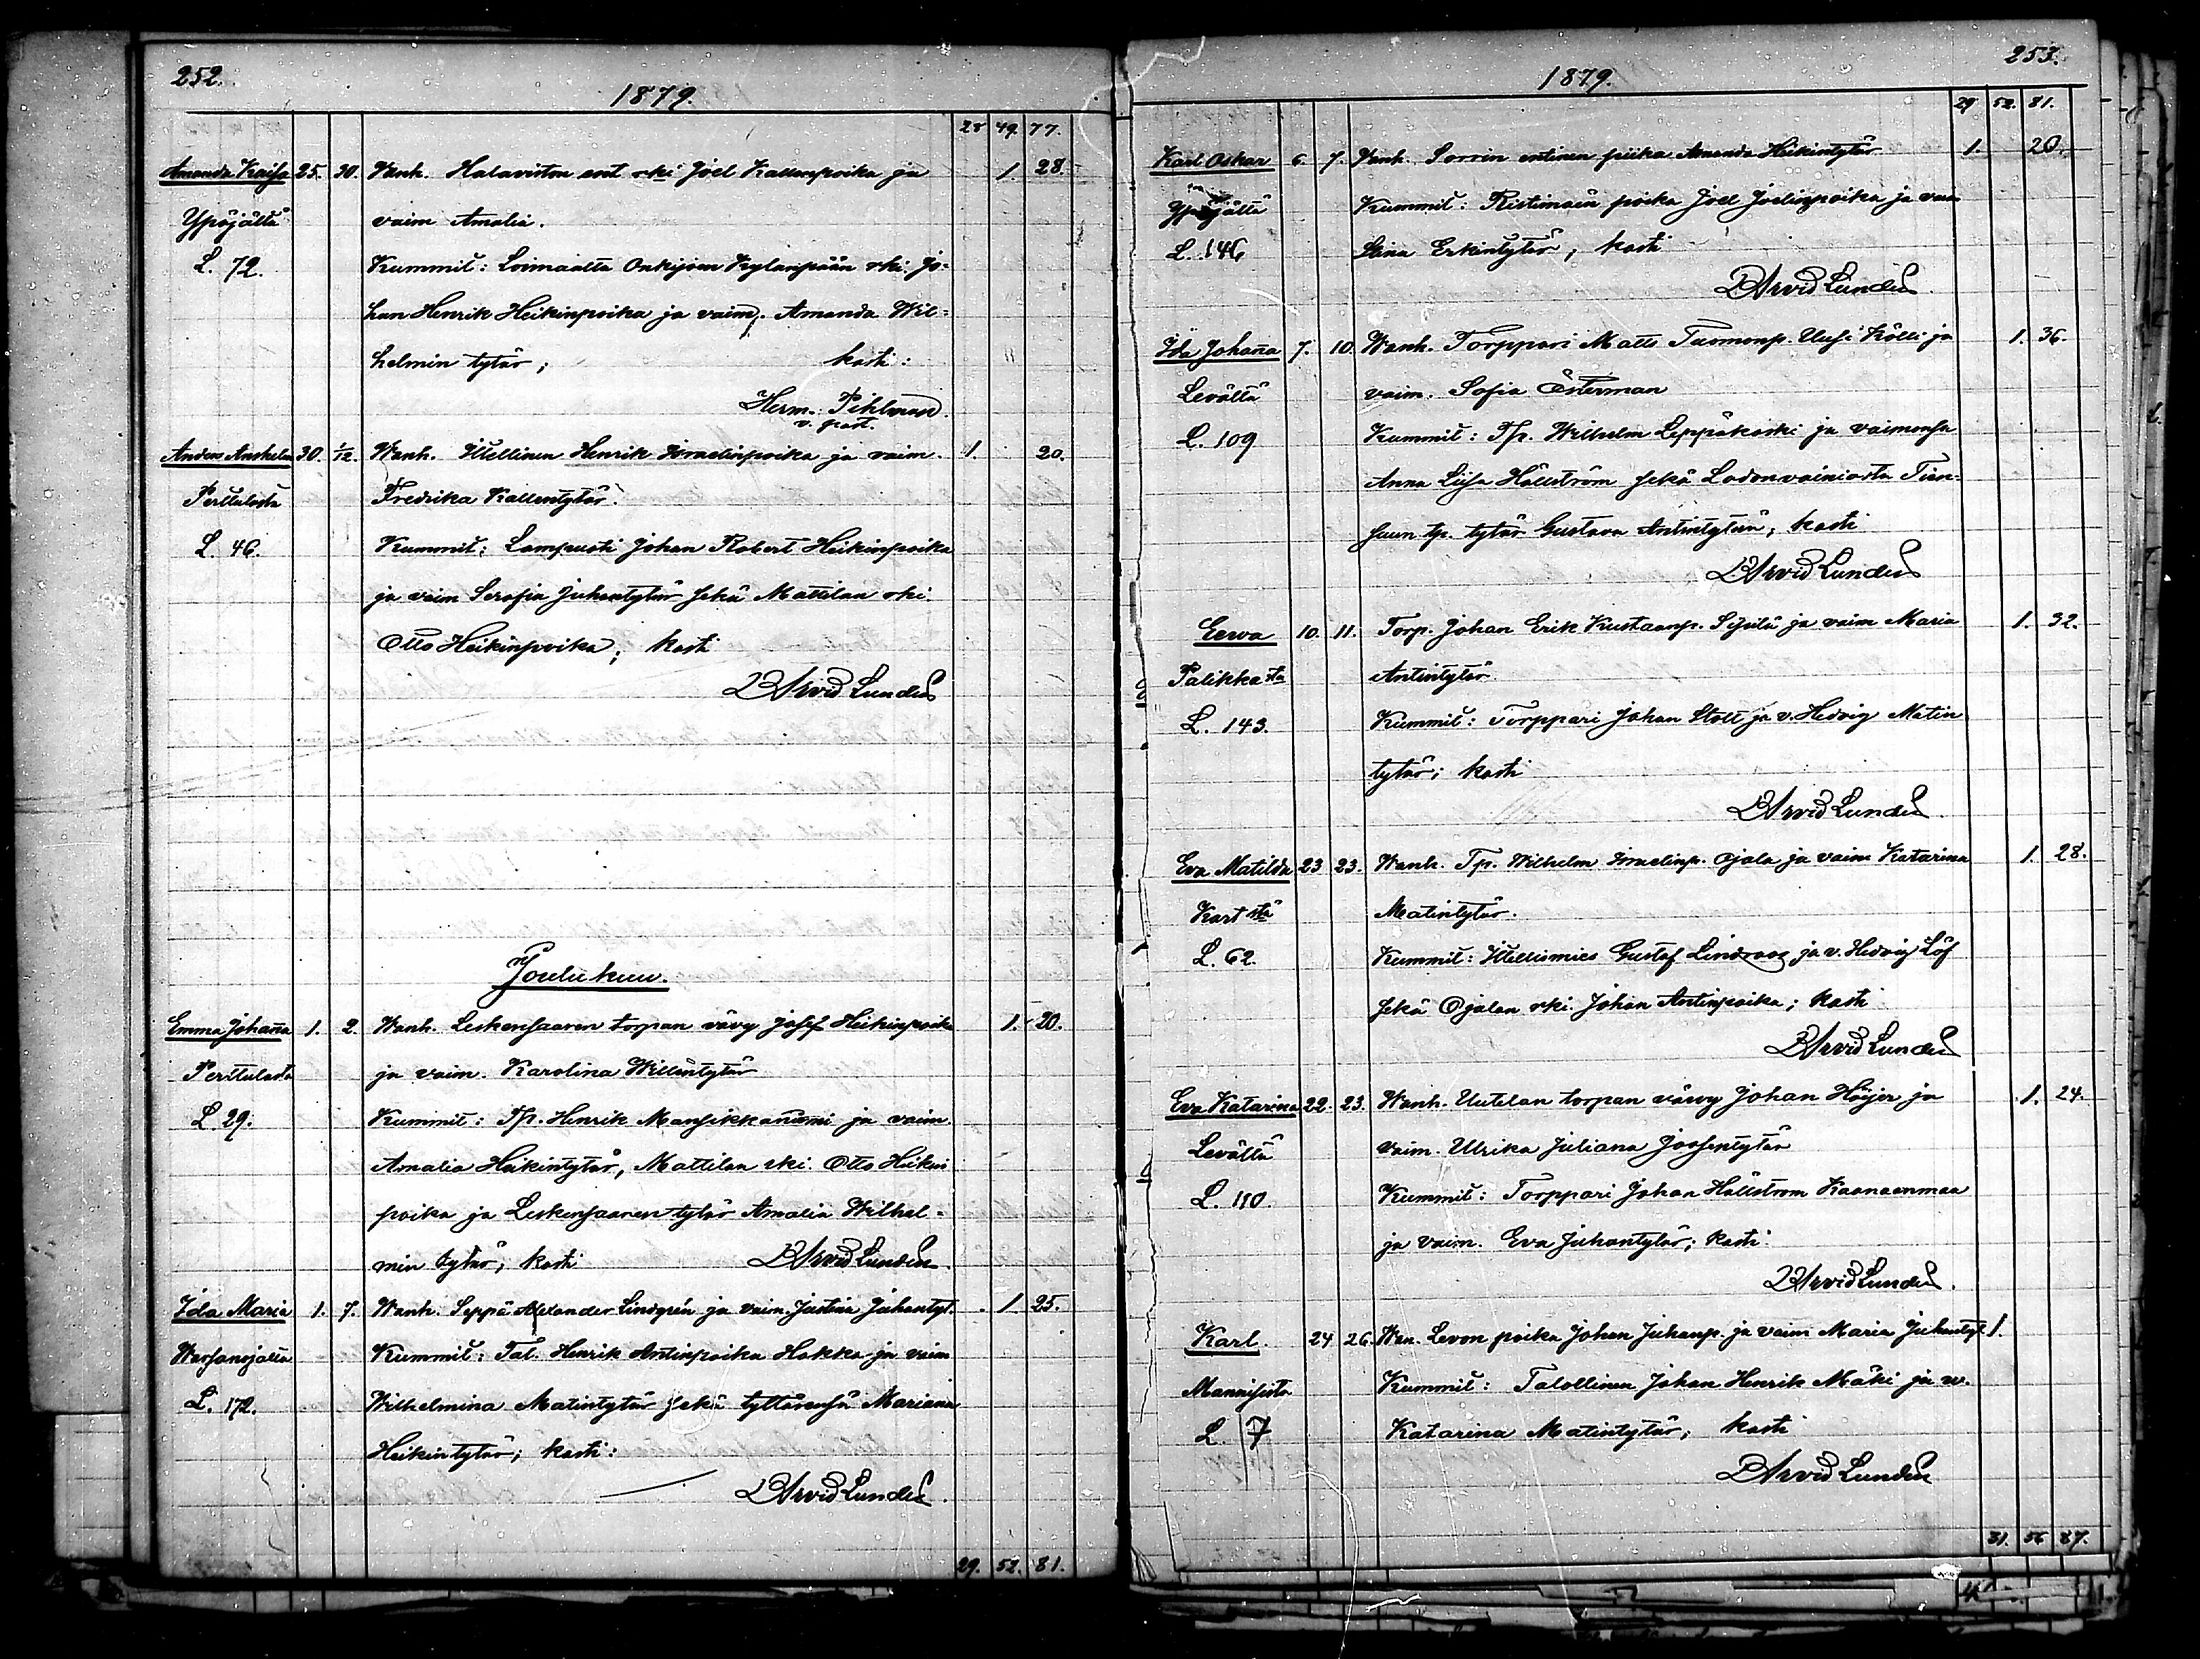 252.
1879.
28 49. 77.
Amanda Kaisa 25. 30. Wanh. Halaviston ent rki Joel Kallenpoika ja 1. 28.
Ypäjältä vaim Amalia.
L. 72. Kummit: Loimaalta Onkijoen Kylänpään rki. Jo-
han Henrik Heikinpoika ja vaim. Amanda Wil-
helmin tytär; kasti:
Herm. Pihlman
v. past.
Anders Anshelm 30. 1/12. Wanh. Itellinen Henrik Israelinpoika ja vaim. 1. 20.
Perttulasta Fredrika Kallentytär.
L. 46. Kummit: Lampuoti Johan Robert Heikinpoika
ja vaim Serafia Juhantytär sekä Mattilan rki.
Otto Heikinpoika; kasti
Arvid Lunden
Joulukuu.
Emma Johanna 1. 2. Wanh. Leskensaaren torpan vävy Josef Heikinpoika 1. 20.
Perttulasta ja vaim. Karolina Willentytär
L 29. Kummit: Tp. Henrik Mansikkaniemi ja vaim.
Amalia Heikintytär, Mattilan rki. Otto Heikin
poika ja Leskensaaren tytär Amalia Wilhel-
min tytär; kasti Arvid Lunden
Ida Maria 1. 7. Wanh. Seppä Alexander Lindgrén ja vaim. Justina Juhantyt. 1 25.
Warsanojalta Kummit: Tal. Henrik Antinpoika Hakka ja vaim
L. 172. Wilhelmina Matintytär sekä tyttärensä Mariana
Heikintytär; kasti:
Arvid Lunden
29. 52. 81.
253.
1879.
29 52. 81.
Karl Oskar 6. 7. Wanh. Sorrin entinen piika Amanda Heikintytär 1. 20.
Ypäjältä Kummit: Ristimäen poika Joel Joelinpoika ja vaim
L. 146 Stina Erkintytär; kasti
Arvid Lunden
Ida Johanna 7. 10. Wanh. Torppari Matts Tuomonp. Uusi Kölli ja 1. 36.
Levältä vaim. Sofia Österman
L. 109 Kummit: Tp. Wilhelm Leppäkoski ja vaimonsa
Anna Liisa Hällström sekä Ladonvainiosta
tp. tytär Gustava Antintytär; kasti
Arvid Lunden
Eeva 10. 11. Torp. Johan Erik Kustaanp. ja vaim Maria 1. 32.
Palikkasta Antintytär
L. 143. Kummit: Torppari Johan Stolt ja v. Hedvig Matin
tytär; kasti
Arvid Lunden
Eva Matilda 23 23. Wanh. Tp. Wilhelm Israelinp. Ojala ja vaim Katarina 1. 28.
Kartstä Matintytär.
L. 62. Kummit: Itellismies Gustaf Lindroos ja v. Hedvig Löf
sekä Ojalan rki. Johan Antinpoika; kasti
Arvid Lunden
Eva Katarina 22. 23. Wanh. Uutelan torpan vävy Johan Höijer ja 1. 24.
Levältä vaim. Ulrika Juliana Joosentytär
L. 110. Kummit: Torppari Johan Hällström Kaanaanmaa
ja vaim. Eva Juhantytär; kasti
Arvid Lunden
Karl. 24 26. Wan. Levon poika Johan Juhanp. ja vaim Maria Juhantyt. 1.
Mannisista Kummit: Talollinen Johan Henrik Mäki ja w.
L. 7 Katarina Matintytär; kasti
Arvid Lunden
31. 56 87.